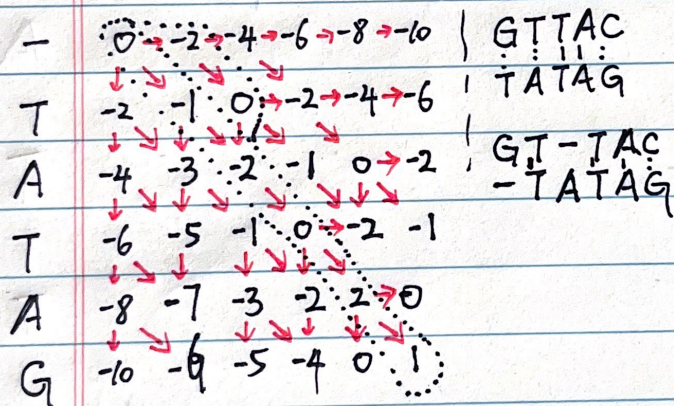 - 0 → -2 → -4 → -6 → -8 → -10
T -2 -1 0 → -2 → -4 → -6
A -4 -3 -2 -1 0 → -2
T -6 -5 -1 0 → -2 -1
A -8 -7 -3 -2 2 → 0
G -10 -6 -5 -4 0 1
GTTAC
TATAG
GT-TAC
-TATAG